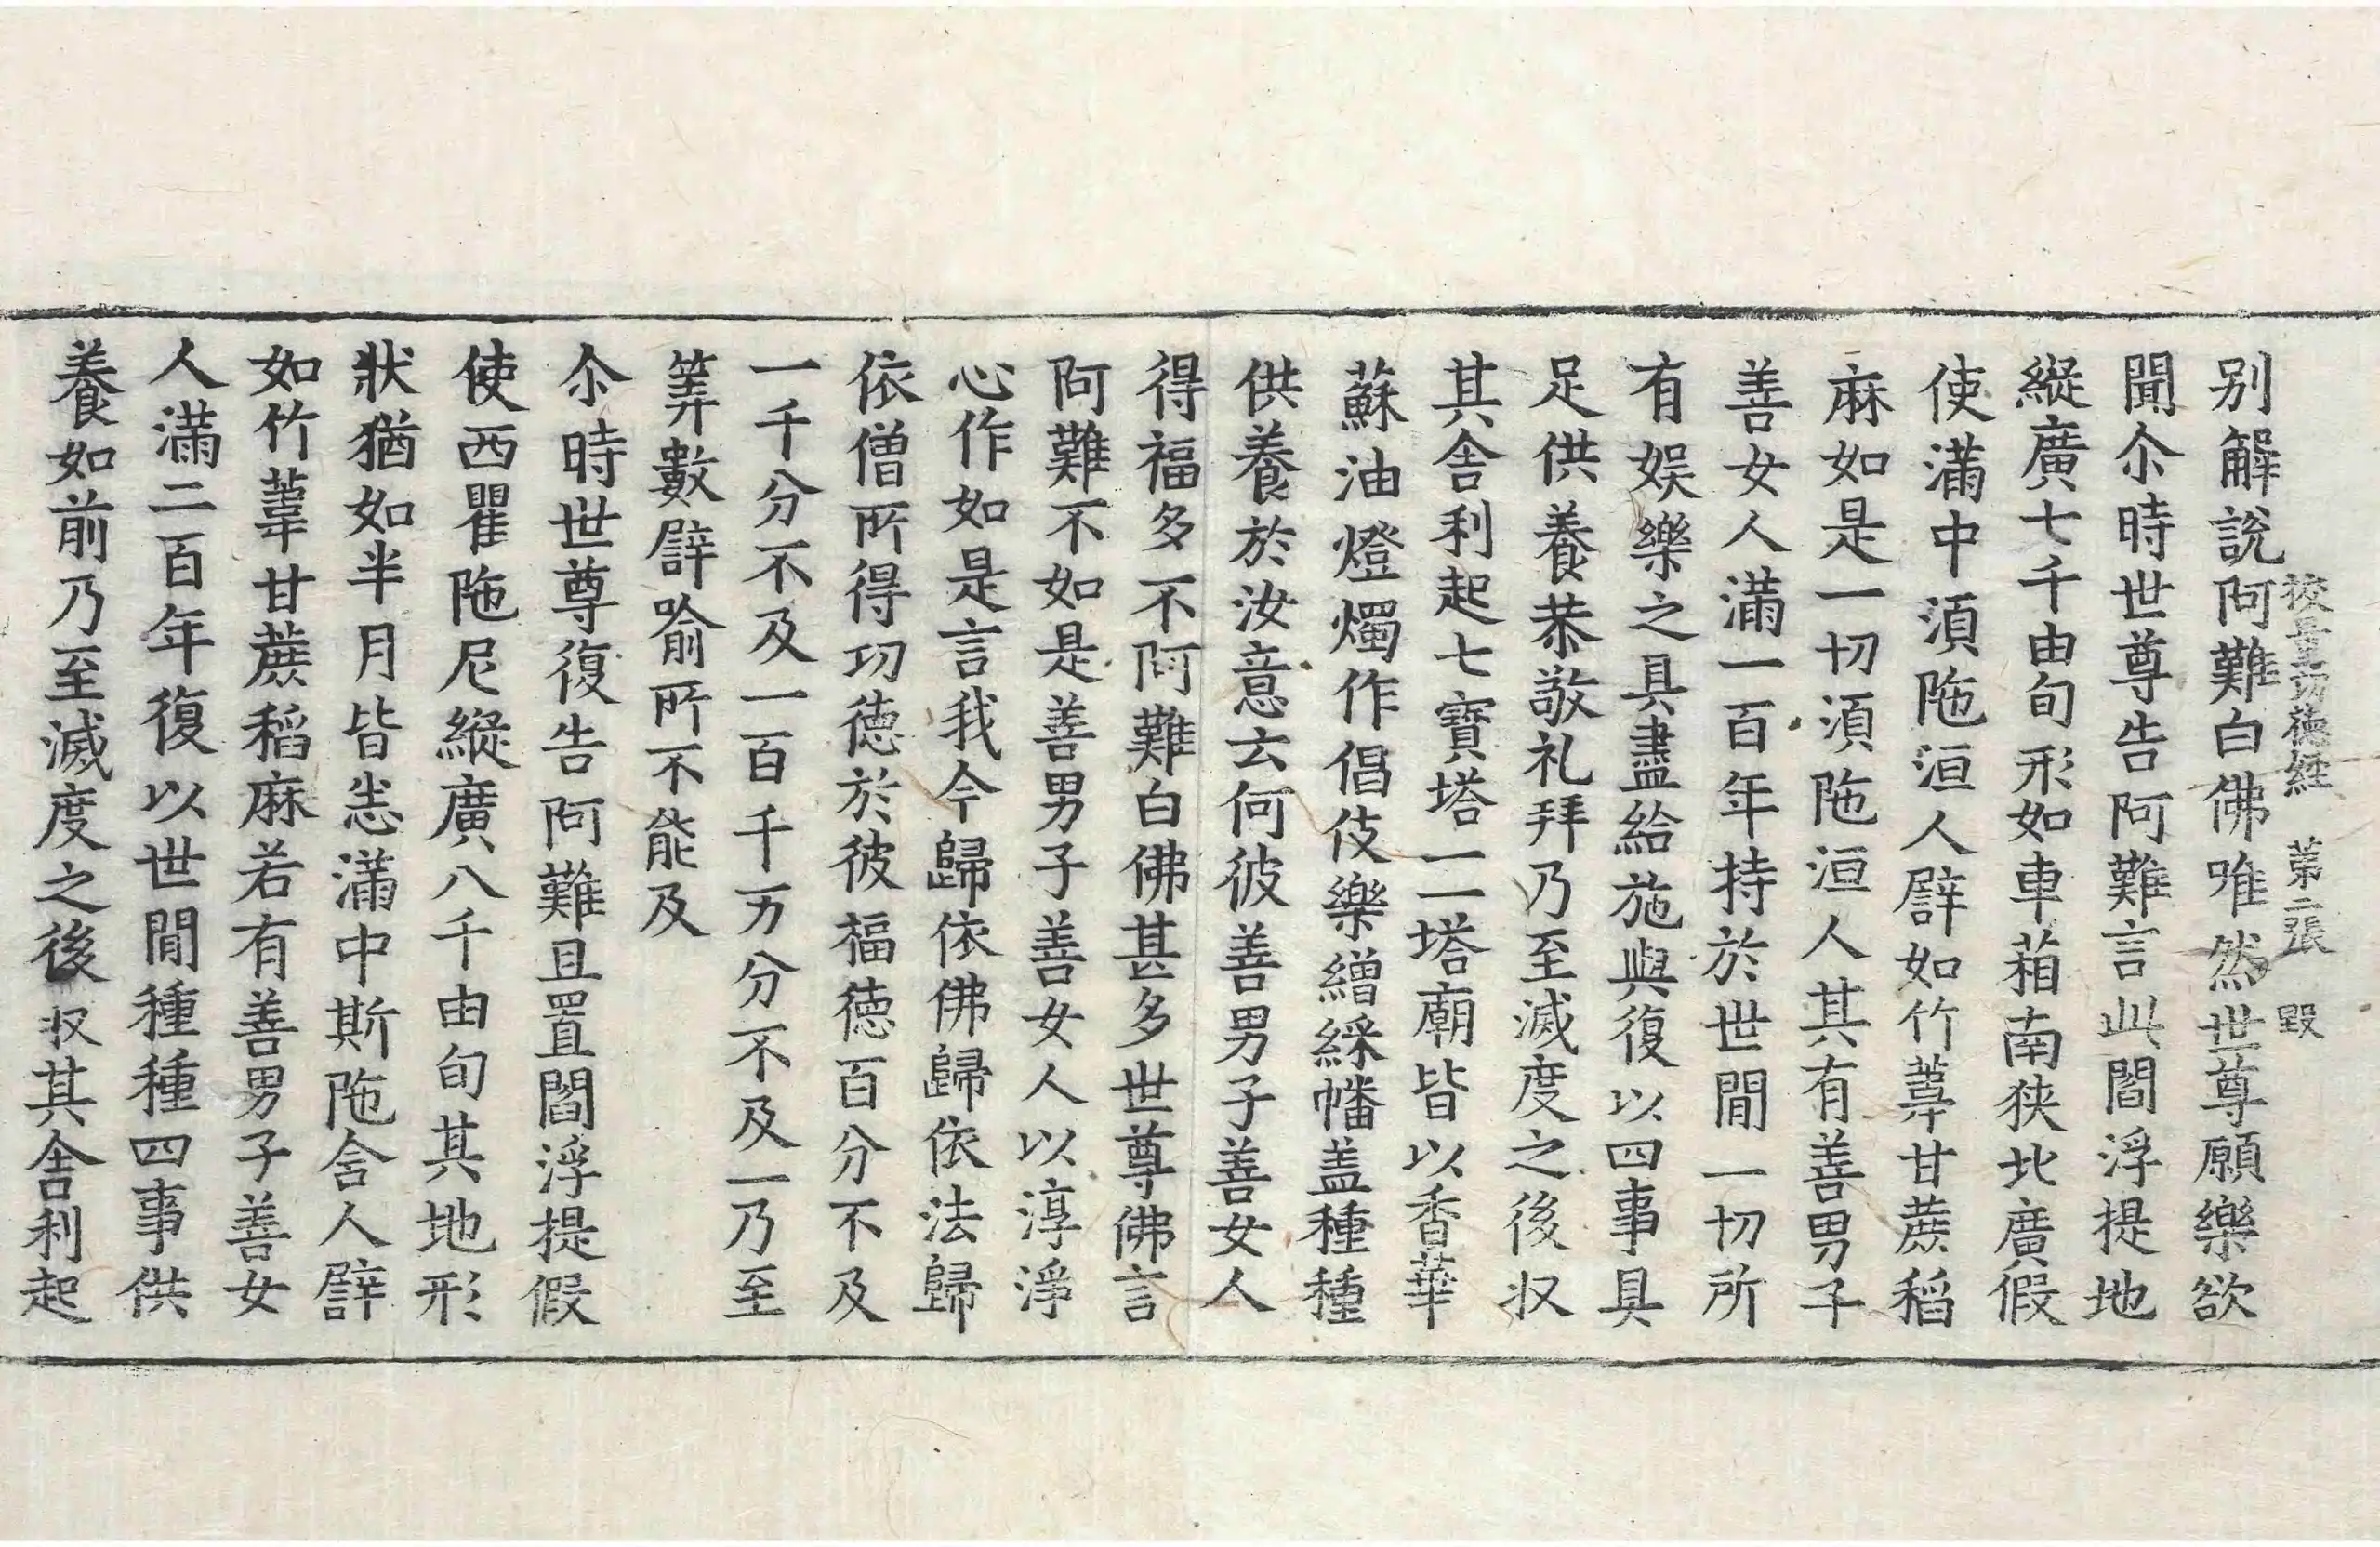 校量功德經 第二張 毀
別解說阿難白佛唯然世尊願樂欲
聞尒時世尊告阿難言此閻浮提地
縱廣七千由旬形如車葙南狹北廣假
使滿中須陁洹人譬如竹葦甘蔗稻
麻如是一切須陁洹人其有善男子
善女人滿一百年持於世間一切所
有娛樂之具盡給施與復以四事具
足供養恭敬礼拜乃至滅度之後収
其舍利起七寶塔一一塔廟皆以香華
蘇油燈燭作倡伎樂繒綵幡盖種種
供養於汝意云何彼善男子善女人
得福多不阿難白佛甚多世尊佛言
阿難不如是善男子善女人以淳淨
心作如是言我今歸依佛歸依法歸
依僧所得功德於彼福德百分不及
一千分不及一百千万分不及一乃至
筭數譬喻所不能及
尒時世尊復告阿難且置閻浮提假
使西瞿陁尼縱廣八千由旬其地形
狀猶如半月皆悉滿中斯陁含人譬
如竹葦甘蔗稻麻若有善男子善女
人滿二百年復以世間種種四事供
養如前乃至滅度之後収其舍利起